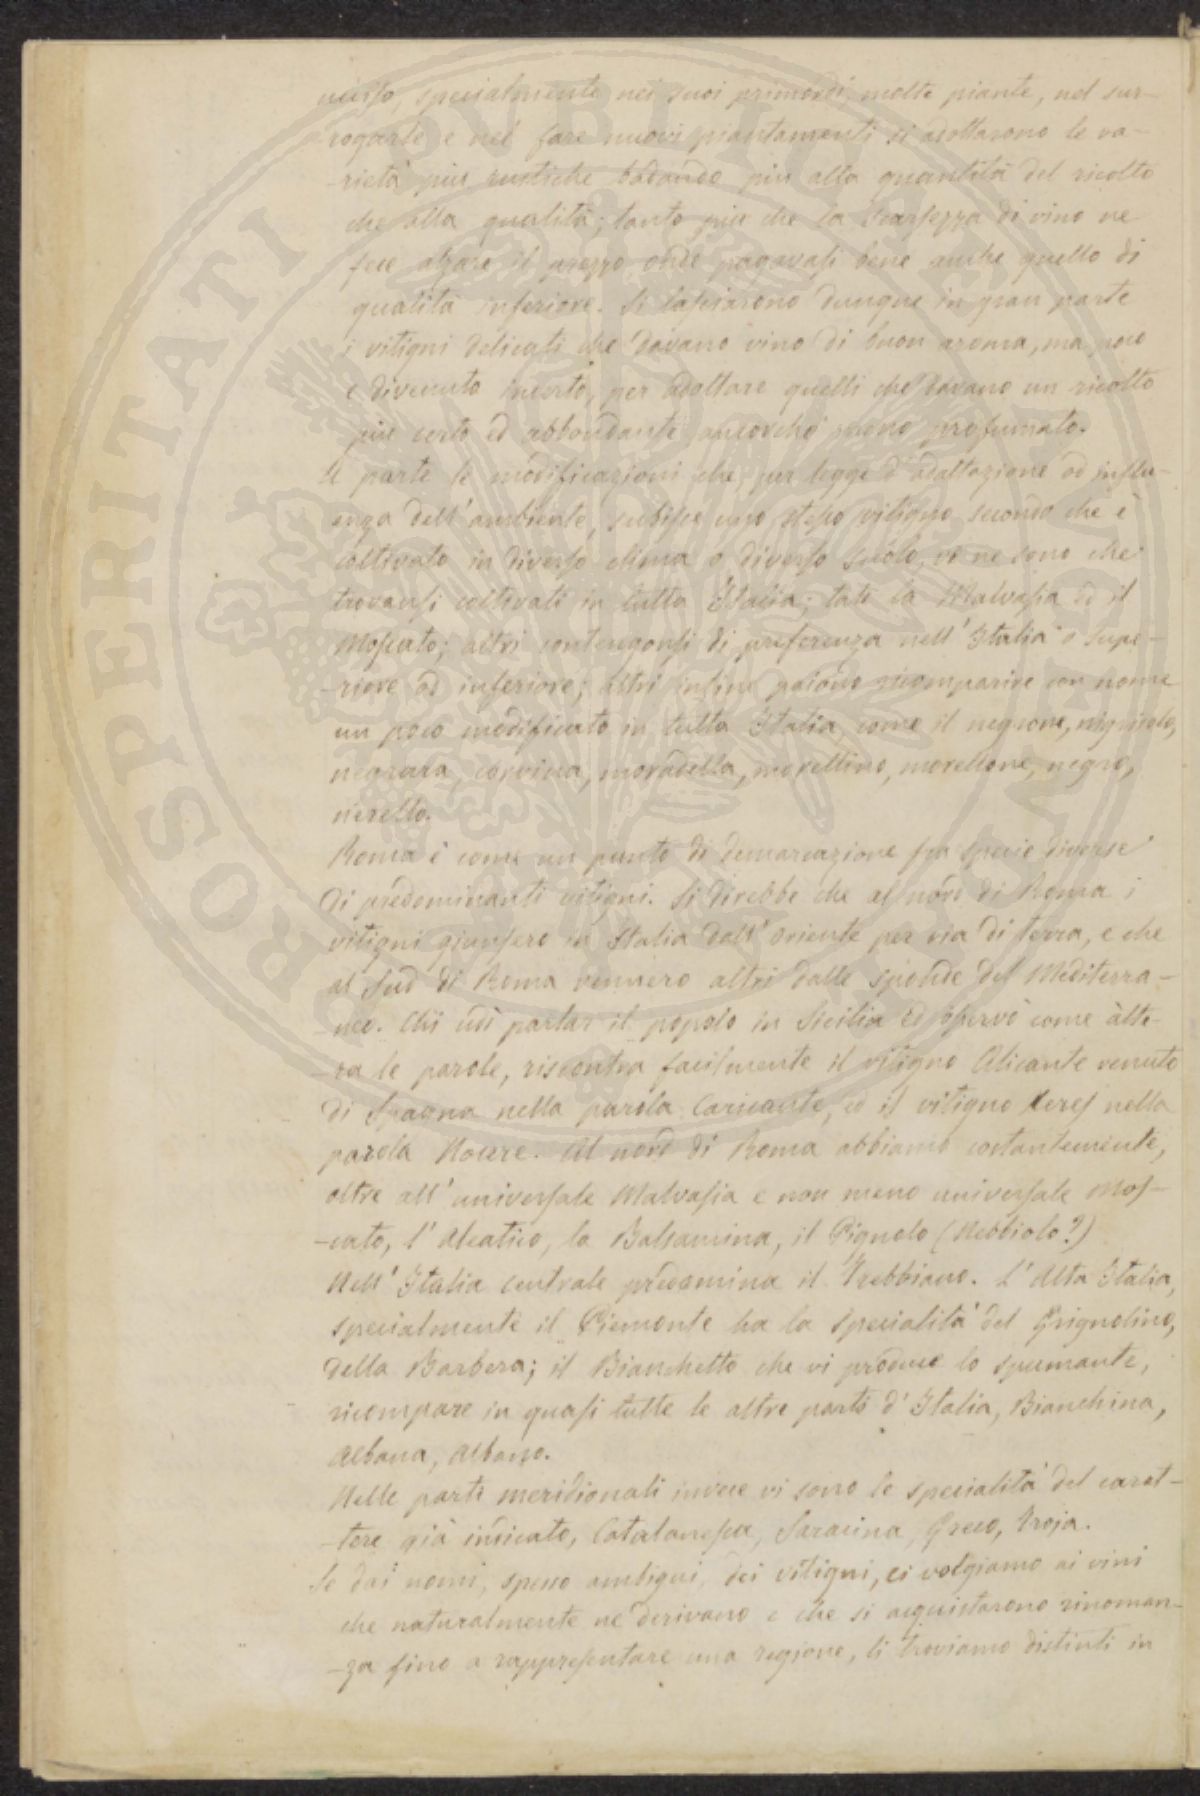 ucciso, specialmente nei suoi primordi, molte piante, nel sur-
-rogarle e nel fare nuovi piantamenti si adottarono le va-
-rietà più rustiche badando più alla quantità del ricolto
che alla qualità; tanto più che la scarsezza di vino ne
fece alzare il prezzo, onde pagavasi bene anche quello di
qualità inferiore. Si lasciarono dunque in gran parte
i vitigni delicati che davano vino di buon aroma, ma poco
e divenuto incerto, per adottare quelli che davano un ricolto
più certo ed abbondante ancorchè meno profumato.
A parte le modificazioni che per legge d'adattazione od influ-
enza dell'ambiente, subisce uno stesso vitigno secondo che è
coltivato in diverso clima o diverso suolo, ve ne sono che
trovansi coltivati in tutta Italia; tali la Malvasia ed il
Moscato; altri contengonsi di preferenza nell'Italia o supe-
-riore od inferiore; altri infine paiono ricomparire con nome
un poco modificato in tutta Italia, come il negrone, nigrisolo,
negrara, corvina, moradella, morellino, morellone, negro,
nerello.
Roma è come un punto di demarcazione fra specie diverse
di predominanti vitigni. Si direbbe che al nord di Roma i
vitigni giunsero in Italia dall'oriente per via di terra, e che
al sud di Roma vennero altri dalle sponde del Mediterra-
-neo. Chi udì parlar il popolo in Sicilia ed osservò come àlte-
-ra le parole, riscontra facilmente il vitigno Alicante venuto
di Spagna nella parola Caricante, ed il vitigno Xeres nella
parola Nocere. Al nord di Roma abbiamo costantemente,
oltre all'universale Malvasia e non meno universale Mos-
-cato, l'Aleatico, la Balsamina, il Pignolo (Nebbiolo?)
Nell'Italia centrale predomina il Trebbiano. L'Alta Italia,
specialmente il Piemonte ha la specialità del Grignolino,
della Barbera; il Bianchetto che vi produce lo spumante,
ricompare in quasi tutte le altre parti d'Italia, Bianchina,
Albana, Albano.
Nelle parti meridionali invece vi sono le specialità del carat-
-tere già indicato, Catalanesca, Saracina, Greco, Troja.
Se dai nomi, spesso ambigui, dei vitigni, ci volgiamo ai vini
che naturalmente ne derivano e che si acquistarono rinoman-
-za fino a rappresentare una regione, li troviamo distinti in
PROSPERITATI PVBLICAE